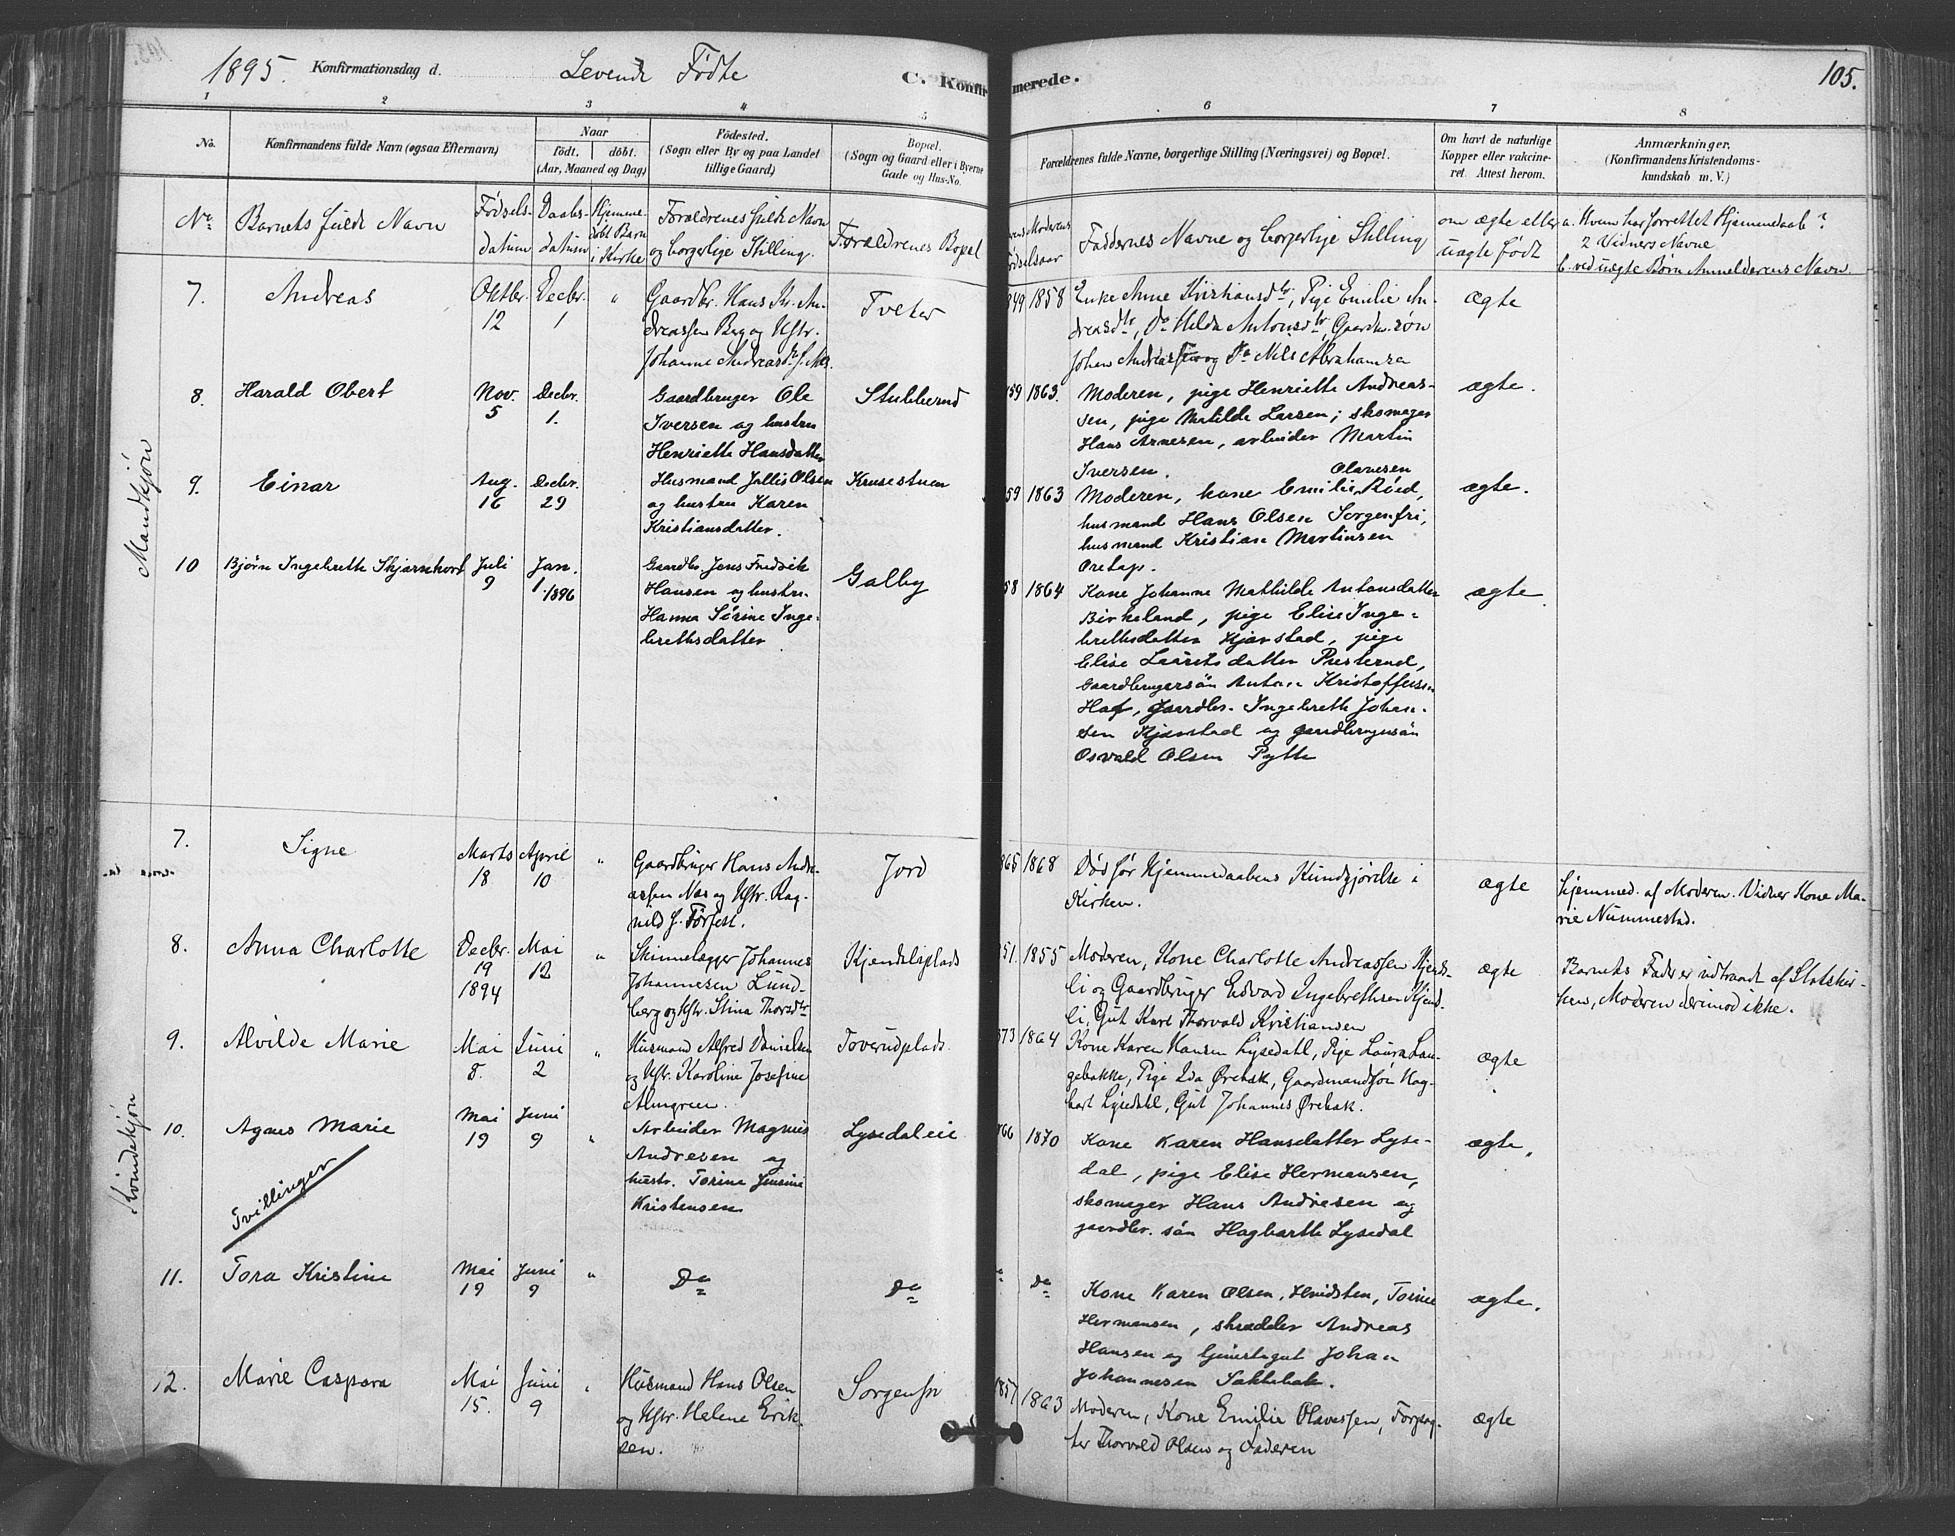 1895. Konfirmationsdag d. Levende Fødte C. Konfirmerede. 105.
1 2 3 4 5 6 7 8
No. Konfirmandens fulde Navn (ogsaa Efternavn)
Naar
født. døbt.
(Aar, Maaned og Dag)
Födested.
(Sogn eller By og paa Landet
tillige Gaard)
Bopæl.
(Sogn og Gaard eller i Byerne
Gade og Hus-No.
Forældrenes fulde Navne, borgerlige Stilling (Næringsvei) og Bopæl.
Om havt de naturlige
Kopper eller vakcine-
ret. Attest herom.
Anmærkninger.
(Konfirmandens Kristendoms-
kundskab m. V.)
No Barnets fulde Navn
Fødsels-
datum
Daabs-
datum
Hjemme-
døbt Barn
i Kirke
Forældrenes fulde Navn
og borgerlige Stilling.
Forældrenes Bopæl
Moderens
Fødselsaar
Faddernes Navne og borgerlije Stilling
om ægte eller
uægte født
a. Hvem har forrettet Hjemmedaab?
2 Vidners Navne
b. ved uægte Børn Anmelderens Navn
Mandkjøn
7. Andreas
Oktbr.
12
Decbr.
1
"
Gaardbr. Hans Kr. An-
dreassen Berg og Hstr.
Johanne Andreasdtr f.
Tveter
1858
Enke Anne Kristiansdtr, Pige Emilie An-
dreasdtr, Do Hilda Antonsdtr, Gaardm.søn
Johan Andreassen og Do Nils Abrahamsen
ægte
8. Harald Obert
Nov.
5
Decbr.
1.
Gaardbruger Ole
Iversen og hustru
Henriette Hansdatter
Stubberud
59 1863.
Moderen, pige Henriette Andreas-
sen, pige Matilde Larsen; skomager
Hans Arnesen, arbeider Martin
Iversen.
ægte.
9. Einar
Aug.
16
Decbr.
29
Husmand Jullis Olsen
og hustru Karen
Kristiansdatter.
Krusestuen
59 1863
Olavesen
Moderen, kone Emilie Röed,
husmand Hans Olsen Sorgenfri,
husmand Kristian Martinsen
ægte.
10 Bjørn Ingebreth Skjarnhort
Juli
9
Jan.
1. 1896
Gaardbr. Jens Fredrik
Hansen og hustru
Hanna Sörine Inge-
brethsdatter
Galby
58 1864
Kone Johanne Mathilde Antonsdatter
Birkeland, pige Elise Inge-
brethsdatter Kjærstad, pige
Elise Lauritsdatter Presterud,
Gaardbrugersön Anton Kristoffersen
Haf, gaardbr. Ingebreth Johan-
sen Kjærstad og gaardbrugersön
Osvald Olsen Pytte
ægte
Kvindekjøn
7. Signe
Marts
18
April
10
"
Gaardbruger Hans Andre-
assen Næs og Hstr. Rag-
nild f. Tørfest.
Jord
865 1868
Død før Hjemmedaabens Kundgjørelse i
Kirken.
ægte
Hjemmed. af Moderen. Vidner Kone Ma-
rie Nummestad.
8. Anna Charlotte
Decbr.
19
1894
Mai
12
"
Skinnelægger Johannes
Johannesen Lund-
berg og Hstr. Stina Thorsdtr
Kjendlsplads
51. 1855
Moderen, Kone Charlotte Andreassen Kjend-
li og Gaardbruger Edvard Ingebrethsen Kjend-
li, Gut Karl Thorvald Kristiansen
ægte
Barnets Fader er udtraadt af Statskir-
ken, Moderen derimod ikke.
9. Alvilde Marie
Mai
8.
Juni
2
"
Husmand Alfred Danielsen
og Hstr. Karoline Josefine
Almgren
Toverudplads.
873 1864
Kone Karen Hansen Lysedahl, Pige Laura Lan-
gebakke, Pige Ida Ørebæk, Gaardmandssøn Hag-
bart Lysedahl, Gut Johannes Ørebæk.
ægte
10. Agnes Marie
Mai
19
Juni
9
"
Arbeider Magnus
Andresen og
hustr. Torine Jensine
Kristensen
Lysedaleie
866 1870
Kone Karen Hansdatter Lyse-
dal, pige Elise Hermansen,
skomager Hans Andresen og
gaardbr. sön Hagbarth Lysedal
ægte.
Tvillinger
11. Tora Kristine
Mai
19
Juni
9
"
Do
Do
Do
Kone Karen Olsen, Hvidsten, Torine
Hermansen, skrædder Andreas
Hansen og tjenestegut Johan
Johannesen Sakkebæk.
ægte.
12. Marie Caspara
Mai
15.
Juni
9
"
Husmand Hans Olsen
og Hstr. Helene Erik-
sen.
Sorgenfri
1857 1863
Moderen, Kone Emilie Olavessen, Forpag-
ter Thorvald Olsen og Faderen
ægte